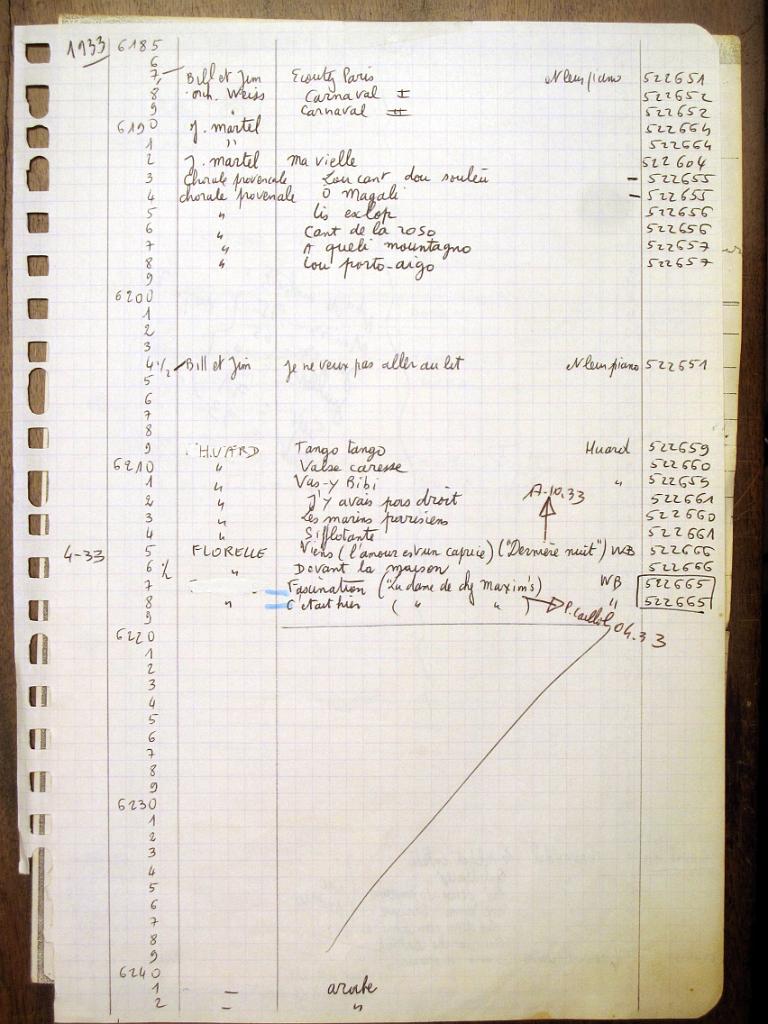 1933 6185
6
7 Bill et Jim Ecoutez Paris N leur piano 522651
8 orch. Weiss Carnaval I 522652
9 " Carnaval II 522652
6190 J. martel 522664
1 " 522664
2 J. martel ma vielle 522604
3 Chorale provencale Lou cant dou souleu 522655
4 chorale provencale O Magali 522655
5 " lis esclop 522656
6 " Cant de la roso 522656
7 " A queli mountagno 522657
8 " Lou porto-aigo 522657
9
6200
1
2
3
4 1/2 Bill et Jim je ne veux pas aller au lit N leur piano 522651
5
6
7
8
9 HUARD Tango tango Huard 522659
6210 " Valse caresse 522660
1 " Vas-y Bibi " 522659
2 " J'y avais pas droit A.10.33 522661
3 " Les marins parisiens 522660
4 " Sifflotante 522661
4-33 5 FLORELLE Viens (l'amour est un caprice) ("Dernière nuit") WB 522666
6 1/2 " Devant la maison 522666
7 Fascination ("La dame de chez maxim's) WB 522665
8 " C'etait hier ( " " ) " 522665
9 P. Caillol 04.33
6220
1
2
3
4
5
6
7
8
9
6230
1
2
3
4
5
6
7
8
9
6240
1 – arabe
2 – "